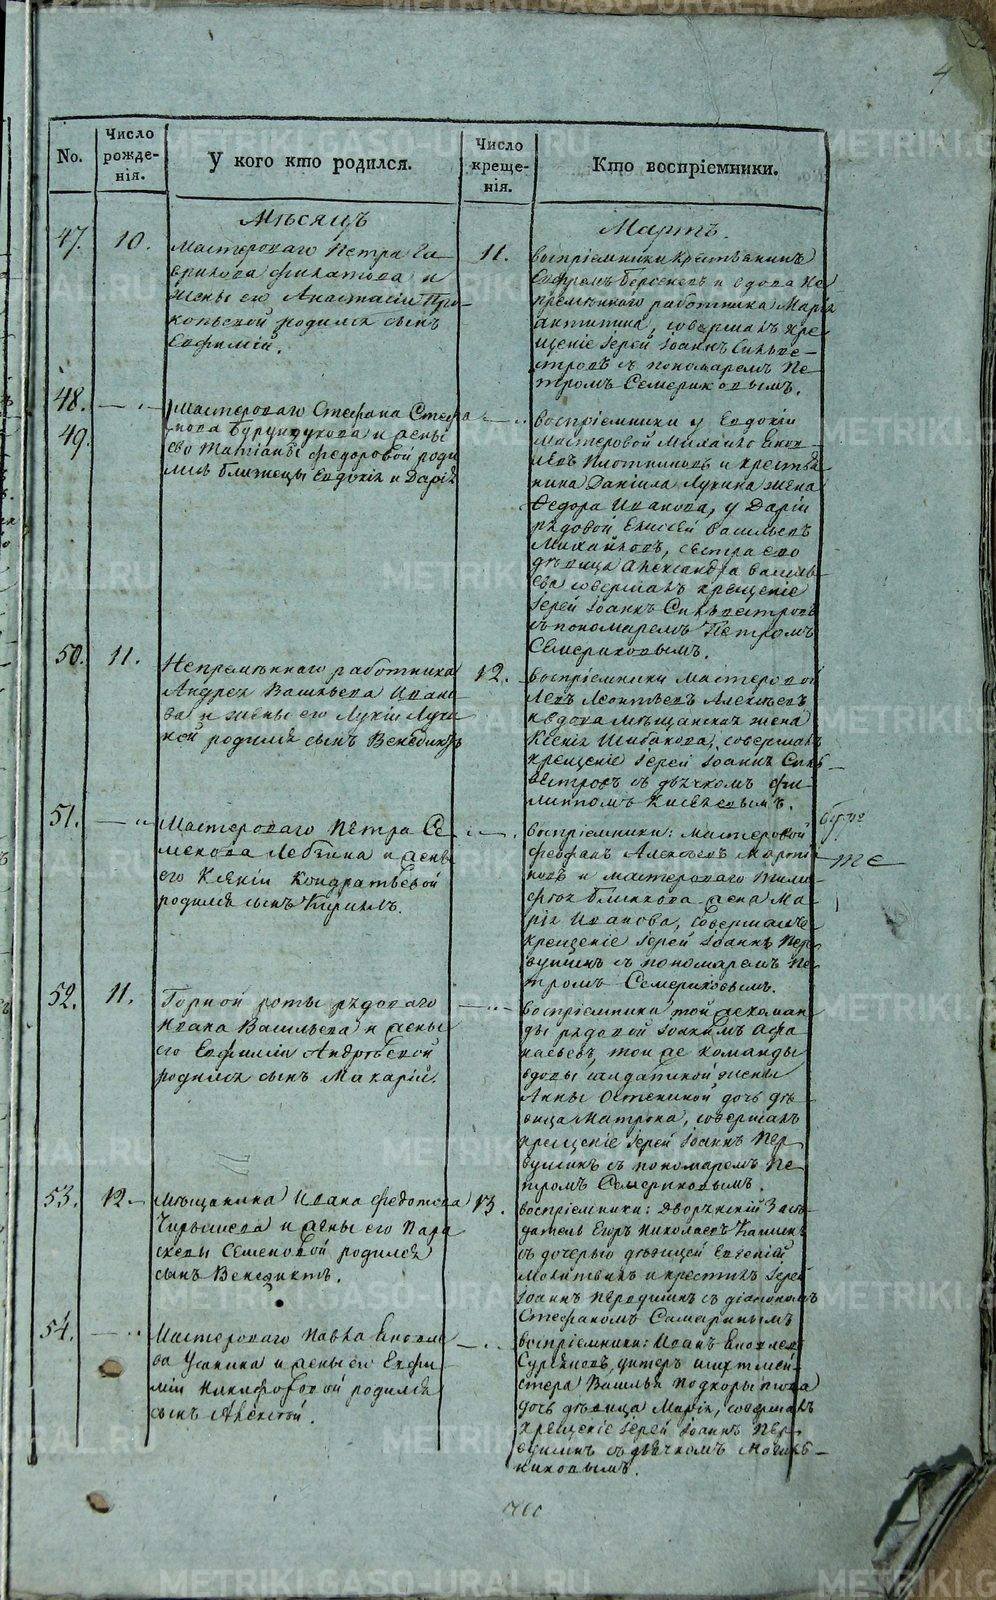 No.
Число рожденія.
У кого кто родился.
Число крещенія.
Кто воспріемники.
Мѣсяцъ
Мартъ.
47.
10.
Мастероваго Петра Га
врилова Филатова и
жены его Анастасіи Про-
копьевой родился сынъ
Евфимій.
11.
воспріемники крестьянинъ
Ефремъ Берсеневъ и вдова не
премѣннаго работника Марія
Антипина, совершалъ кре-
щеніе Іерей Іоаннъ Сильве-
стровъ съ пономаремъ Пе-
тромъ Семериковымъ.
48.
49.
Мастероваго Стефана Стефа
нова Бурундукова и жены
его Татіаны Федоровой роди
лись близнецы Евдокія и Дарія
воспріемники у Евдокіи
Мастеровой Михайло Яков-
левъ Плотниковъ и крестья
нина Даніила Лукина жена
Федора Иванова, у Даріи
рядовой Елисей Васильевъ
Михайловъ, сестра его
дѣвица Александра Василь-
ева совершалъ крещеніе
Іерей Іоаннъ Сильвестровъ
съ пономаремъ Петромъ
Семериковымъ.
50.
11.
Непремѣннаго работника
Андрея Васильева Ивано
ва и жены его Лукіи Луки
ной родился сынъ Венедиктъ
12.
воспріемники мастеровой
Левъ Леонтьевъ Алексѣевъ
и вдова мѣщанская жена
Ксенія Шибакова, совершалъ
крещеніе Іерей Іоаннъ Силь-
вестровъ съ дьячкомъ Фи-
липпомъ Киселевымъ.
51.
Мастероваго Петра Се-
менова Лебзина и жены
его Ксеніи Кондратьевой
родился сынъ Кириллъ.
воспріемники: мастеровой
Феофанъ Алексѣевъ Марты
новъ и мастероваго
Блинкова жена Ма-
рія Иванова, совершалъ
крещеніе Іерей Іоаннъ Пер-
вушинъ съ пономаремъ Пе-
тромъ Семериковымъ.
52.
11.
Горной роты рядоваго
Ивана Васильева и жены
его Евфиміи Андреевой
родился сынъ Макарій.
воспріемники той же коман
ды рядовой Іоакимъ Афа
насьевъ, той же команды
вдовы салдатской жены
Анны Остениной дочь дѣ
вица Матрона, совершалъ
крещеніе Іерей Іоаннъ Пер
вушинъ съ пономаремъ Пе
тромъ Семериковымъ.
53.
12
Мѣщанина Ивана Федотова
Чирышева и жены его Пара
скевы Семеновой родился
сынъ Венедиктъ.
13.
воспріемники: Дворянскій Засѣ
датель Егоръ Николаевъ Кашинъ
съ дочерью дѣвицей Евгеніей
Молитвилъ и крестилъ Іерей
Іоаннъ Первушинъ съ діакономъ
Стефаномъ Самаринымъ
54.
Мастероваго Павла Яковле
ва Усанина и жены его Евфи-
міи Никифоровой родился
сынъ Алексѣй.
воспріемники: Иванъ Яковлевъ
Суряновъ, унтеръ шихтмей-
стера Василья Подкорытова
дочь дѣвица Марія, совершалъ
крещеніе Іерей Іоаннъ Пер-
вушинъ съ дьячкомъ
METRIKI.GASO-URAL.RU